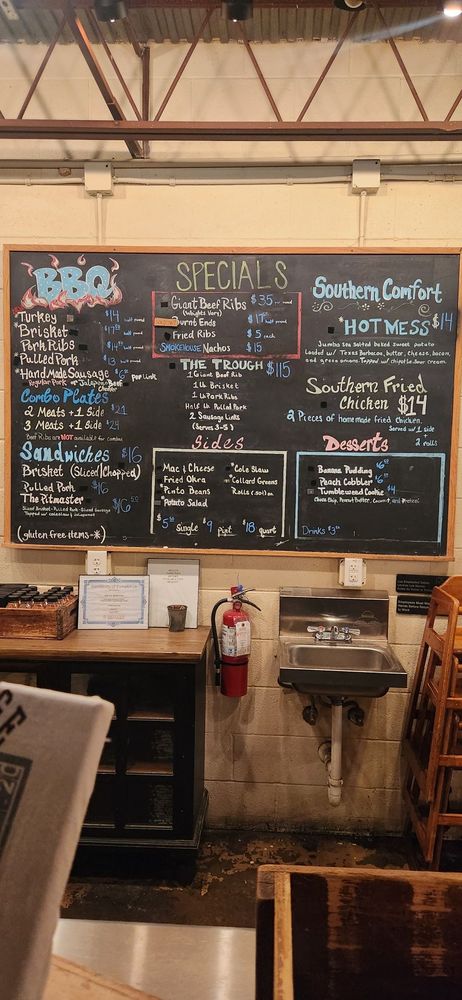 BBQ
*Turkey $14 half pound
*Brisket $17 half pound
*Pork Ribs $14 half pound
*Pulled Pork $13 half pound
*Hand Made Sausage $6 per link
Regular Pork or Jalapeno Cheese
Combo Plates
2 Meats +1 Side $21
3 Meats +1 Side $24
Beef Ribs are NOT available for combos
Sandwiches $16
Brisket (Sliced/Chopped)
Pulled Pork $16
The Pitmaster $16
Sliced Brisket - Pulled Pork - Sliced Sausage
Topped w/ coleslaw & jalapenos
(gluten free items-*)
SPECIALS
Giant Beef Ribs $35
(Weights Vary)
Burnt Ends $17 half pound
Fried Ribs $5 each
SMOKEHOUSE Nachos $15
THE TROUGH $115
1 Giant Beef Rib
1 lb Brisket
1 lb Pork Ribs
Half lb Pulled Pork
2 Sausage Links
(Serves 3-5)
Sides
Mac & Cheese
Fried Okra
*Pinto Beans
*Potato Salad
*Cole Slaw
*Collard Greens
Rolls (.50) ea
$5 Single $9 pint $18 quart
Southern Comfort
*HOT MESS $14
Jumbo sea salted baked sweet potato
Loaded w/ Texas Barbacoa, butter, cheese, bacon,
and green onions. Topped w/ chipotle sour cream.
Southern Fried
Chicken $14
2 Pieces of homemade fried chicken.
Served w/ 1 side
+
2 rolls
Desserts
Banana Pudding $6
Peach Cobbler $6
Tumbleweed Cookie $4
Choco Chip, Peanut Butter, Coconut, and Pretzel
Drinks $3